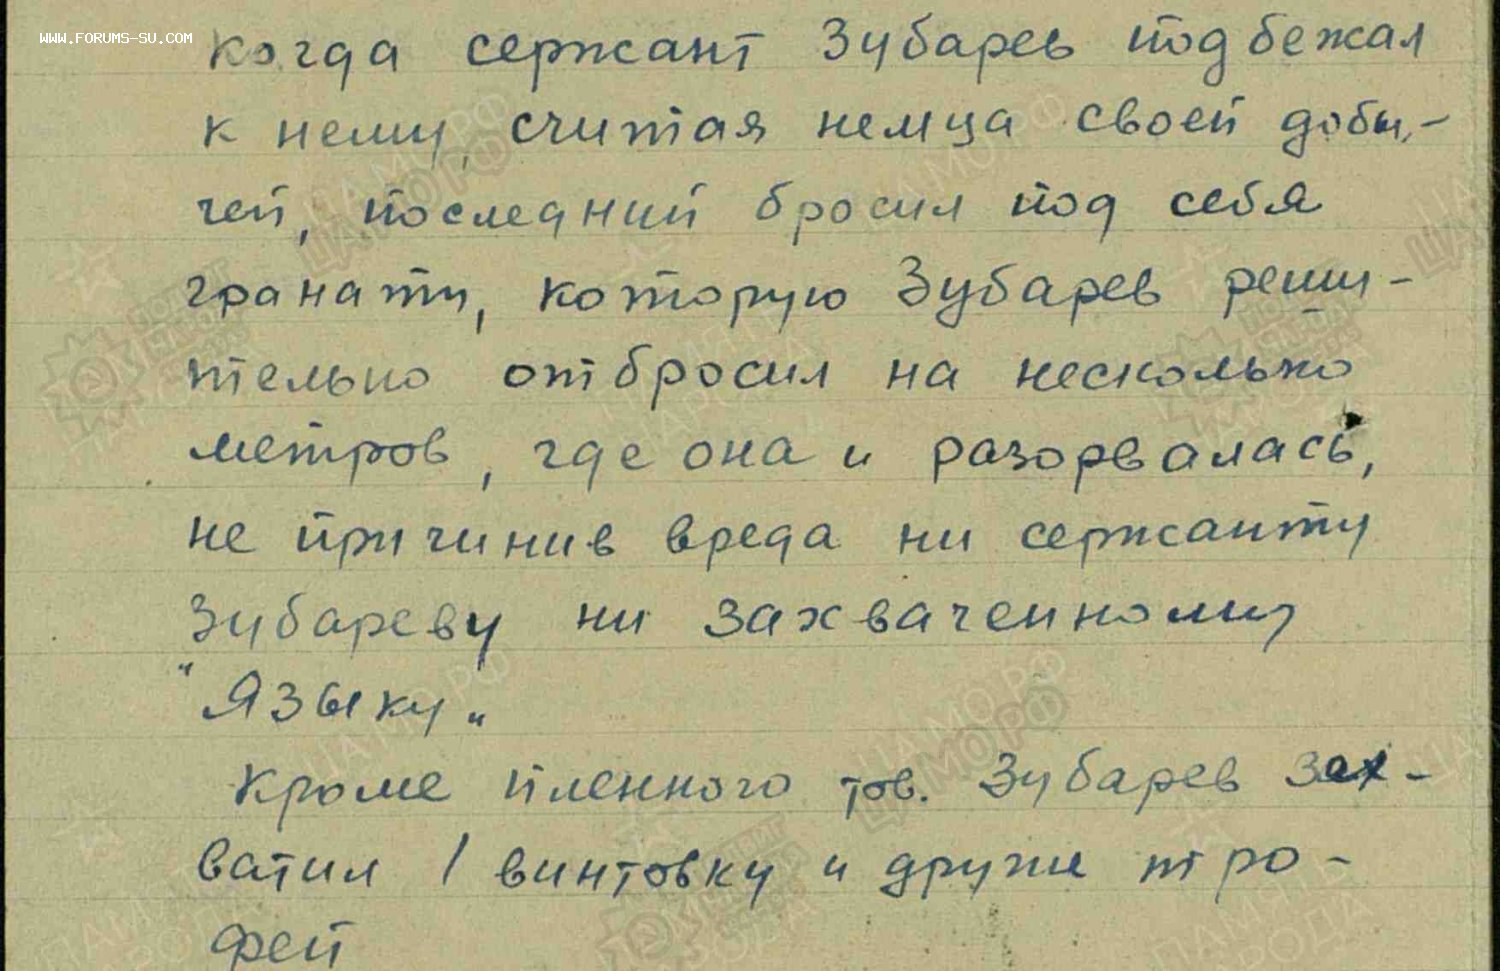 WWW.FORUMS-SU.COM
когда сержант Зубарев подбежал
к нему, считая немца своей добы-
чей, последний бросил под себя
гранату, которую Зубарев реши-
тельно отбросил на несколько
метров, где она и разорвалась,
не причинив вреда ни сержанту
Зубареву ни захваченному
"Языку"
Кроме пленного тов. Зубарев зах-
ватил 1 винтовку и другие тро-
феи